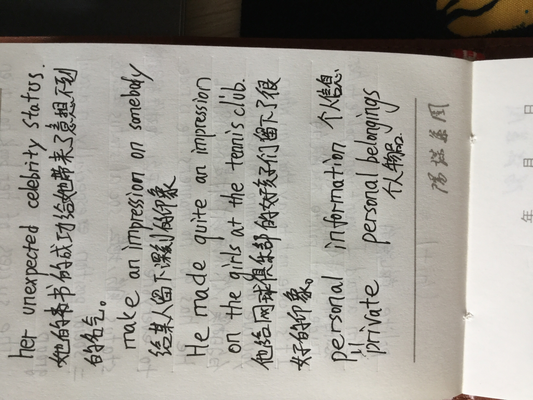 her unexpected celebrity status.
她的书的成功给她带来了意想不到
的名气。
make an impression on somebody
给某人留下深刻的印象
He made quite an impression
on the girls at the tennis club.
他给网球俱乐部的女孩子们留下了很
好的印象。
personal information 个人信息
private personal belongings
个人物品
年 月 日